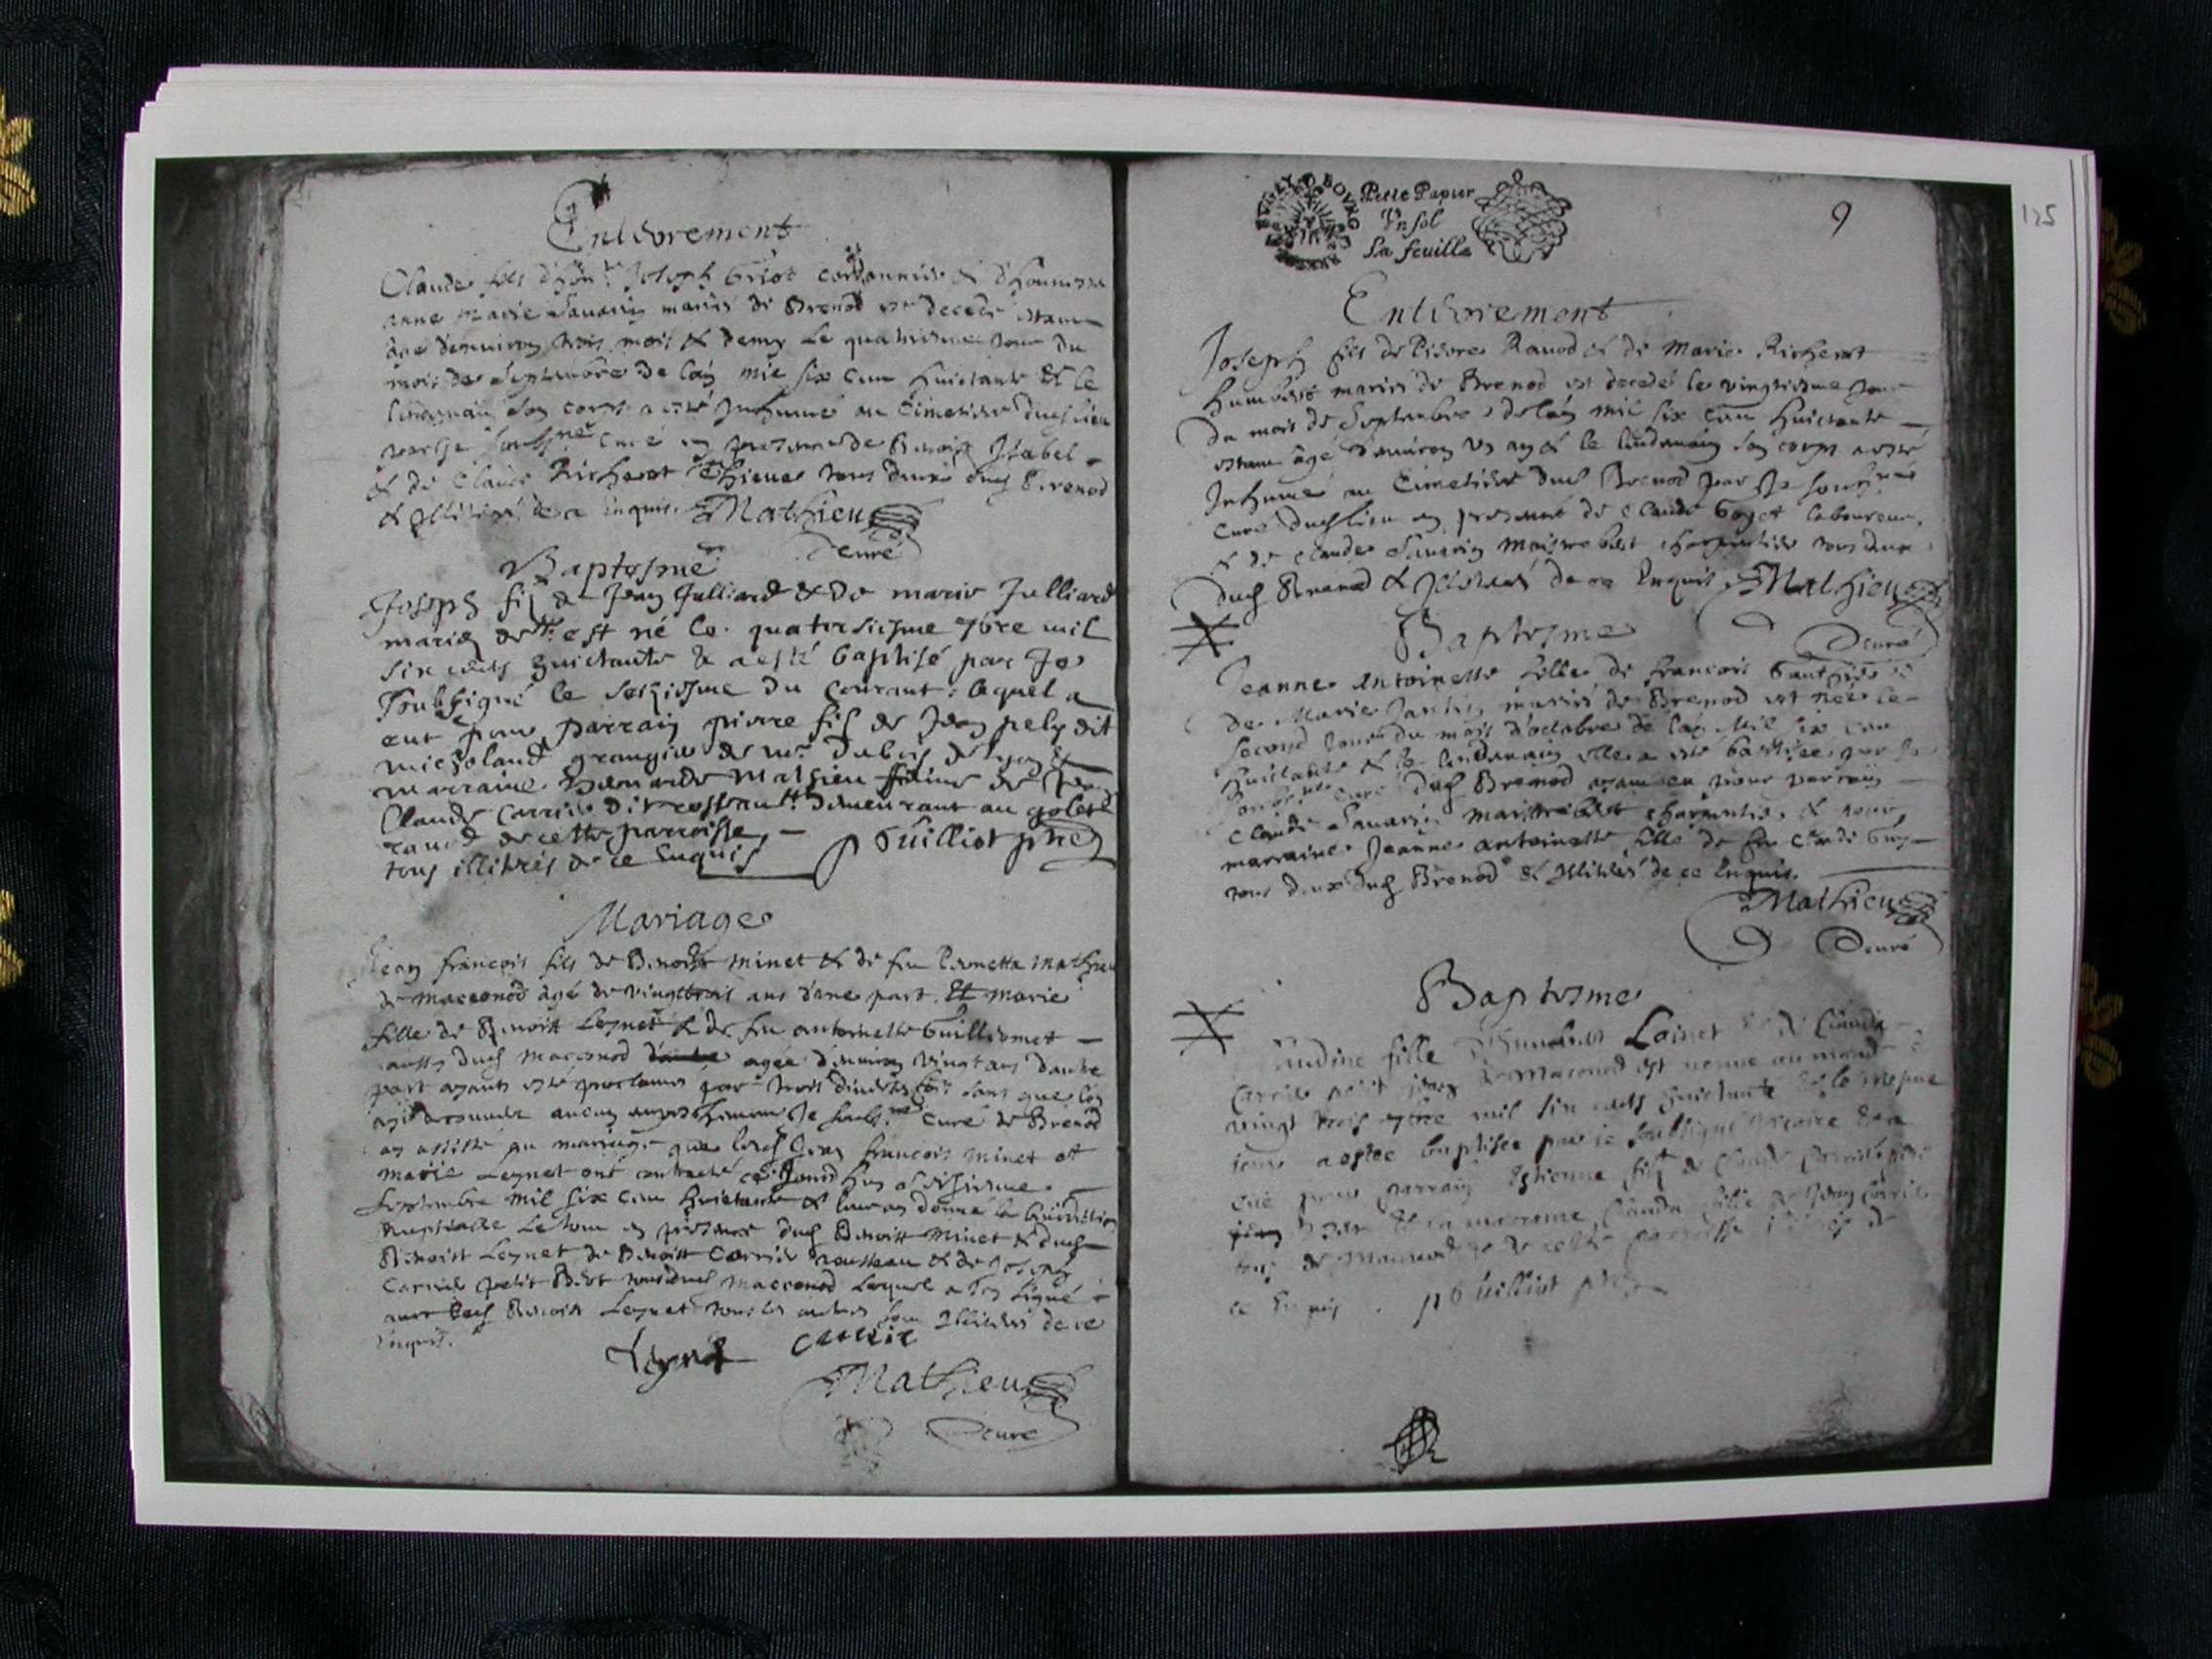 Enterrement
Claude fils d'hon. Joseph Griot cordonnier & d'honneste
anne Marie Savarin mariés de Brenod est decedé estant
âgé d'environ trois mois & demy Le quatriesme jour du
mois de Septembre de l'an mil six cen huictante Et le
lendemain son corps a esté Inhumé au Cimetiere dud lieu
par Je soubsné curé en presence de Benoist Isabel
& de Claude Richerot Thieve tous deux dud Brenod
& Illiterés de ce enquis. Mathieu
Curé
Baptesme
Joseph fil de Jean Julliard & de marie Julliard
mariés est né le quatorsiesme 7bre mil
six cents huictante & a esté baptisé par Je
soubsigné le seiziesme du courant: lequel a
eut pour parrain pierre fil de Jean pely dit
micholand grangier de mr. Dubois de lyon &
marraine Bernarde Mathieu femme de Jean
Claude Carrier dit rosseau demeurant au golet
de cette parroisse,
tous illiterés de ce Enquis p Guilliot ptre
Mariage
Jean françois fils de Benoist minet & de feu Pernette Mathieu
de macconod âgé de vingttrois ans d'une part. Et marie
fille de Benoist Leynet & de feu antoinette Guillermet
aussy dud Macconod agée d'environ vingt ans dautre
part ayants esté proclamés par trois diverses fois sans que l'on
aye decouvert aucun empeschement Je soubsné Curé de Brenod
ay assisté au mariage que lesd Jean francois minet et
marie Leynet ont contracté ce Jourd'huy seiziesme
Septembre mil six cen huictante & leur ay donné la benediction
nuptialle Le tout en presence dud Benoist Minet & dud
Benoist Leynet de Benoist Carrier rousseau & de Joseph
Carrier petit tous dud Macconod Lequel a Icy signé
avec led Benoist Leynet tous les autres sont Illiterés de ce
Enquis.
Leynet Carrie
Mathieu
Curé
Petit Papier
Un sol
La feuille
9
125
Enterrement
Joseph fils de Pierre Ravod & de Marie Richerot
humbert mariés de Brenod est decedé le vingtiesme jour
du mois de Septembre de l'an mil six cen huictante
estant âgé d'environ un an & le lendemain son corps a esté
Inhumé au Cimetiere dud Brenod par Je soubsné
Curé dud lieu en presence de Claude Goyet laboureur
& de Claude Savarin Maistre charpentier tous deux
dud Brenod & Illiterés de ce Enquis. Mathieu
Curé
Baptesme
Jeanne Antoinette fille de francois
de Marie mariés de Brenod est née le
second jour du mois d'octobre de l'an Mil six cen
huictante & le lendemain elle a esté baptisée par Je
soubsné curé dud Brenod ayant eu pour parrain
Claude Savarin Maistre charpentier & pour
marraine Jeanne antoinette fille de feu Claude Guy
tous deux dud Brenod & Illiterés de ce Enquis.
Mathieu
Curé
Baptesme
Claudine fille Loinet & de Clauda
Carrier petit jean de Maconod est venue au monde
vingt trois mil six cents huictante & le mesme
jour a estée baptisée par je soubsigné vicaire
eut pour parrain Estienne fil de Claude Carrier petit
jean & sa marraine Clauda fille de Jean Carrier
tous de Maconod & de cette parroisse illiterés de
ce Enquis. p Guilliot ptre